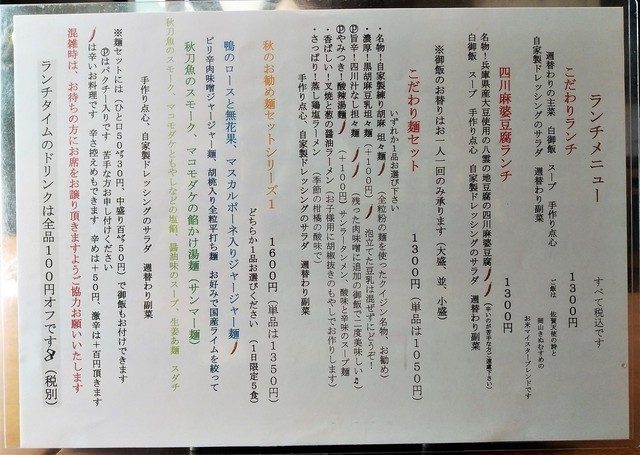 ランチメニュー
すべて税込です
こだわりランチ　1300円
週替わりの主菜　白御飯　スープ　手作り点心
自家製ドレッシングのサラダ　週替わり副菜
ご飯は　佐賀天使の詩と
岡山きぬむすめの
お米マイスターブレンドです
四川麻婆豆腐ランチ　1300円
名物！兵庫県産大豆使用の八雲の地豆腐の四川麻婆豆腐
(辛いのが苦手な方ご遠慮下さい)
白御飯　スープ　手作り点心　自家製ドレッシングのサラダ　週替わり副菜
※御飯のお替りはお一人一回のみ承ります（大盛、並、小盛）
こだわり麺セット　1300円（単品は1050円）
いずれか1品お選び下さい
・名物！自家製練り胡麻 坦々麺（全粒粉の麺を使ったクイジン名物、お勧め）
・濃厚！黒胡麻豆乳坦々麺（+100円）泡立てた豆乳は混ぜずにどうぞ！
Ⓟ旨辛！四川汁なし担々麺（残った肉味噌に追加の御飯で二度美味しい♫）
Ⓟやみつき！酸辣湯麺（+100円）サンラータンメン、酸味と辛味のスープ麺
・香ばしい！叉焼と葱の醤油ラーメン（お子様用に胡椒抜きのもやしでお作りします）
・さっぱり！蒸し鶏塩ラーメン　（季節の柑橘の酸味で）
手作り点心、自家製ドレッシングのサラダ　週替わり副菜
秋のお勧め麺セットシリーズ1　1600円（単品は1350円）
どちらか1品お選びください　（1日限定5食）
鴨のロースと無花果、マスカルポーネ入りジャージャー麺
ピリ辛肉味噌ジャージャー麺、胡桃入り全粒平打ち麺　お好みで国産ライムを絞って
秋刀魚のスモーク、マコモダケの餡かけ湯麺（サンマー麺）
秋刀魚のスモーク、マコモダケともやしなどの塩餡、醤油味のスープ、生姜あ麺　スダチ
手作り点心、自家製ドレッシングのサラダ　週替わり副菜
※麺セットには（ひと口50㌘50円、中盛り百㌘50円）で御飯もお付けできます
Ⓟはパクチー入りです　苦手な方お申し付けください
は辛いお料理です　辛さ控えめもできます　辛めは+50円、激辛は+百円頂きます
混雑時は、お待ちの方にお席をお譲り頂きますようご協力お願いいたします
ランチタイムのドリンクは全品100円オフです（税別）